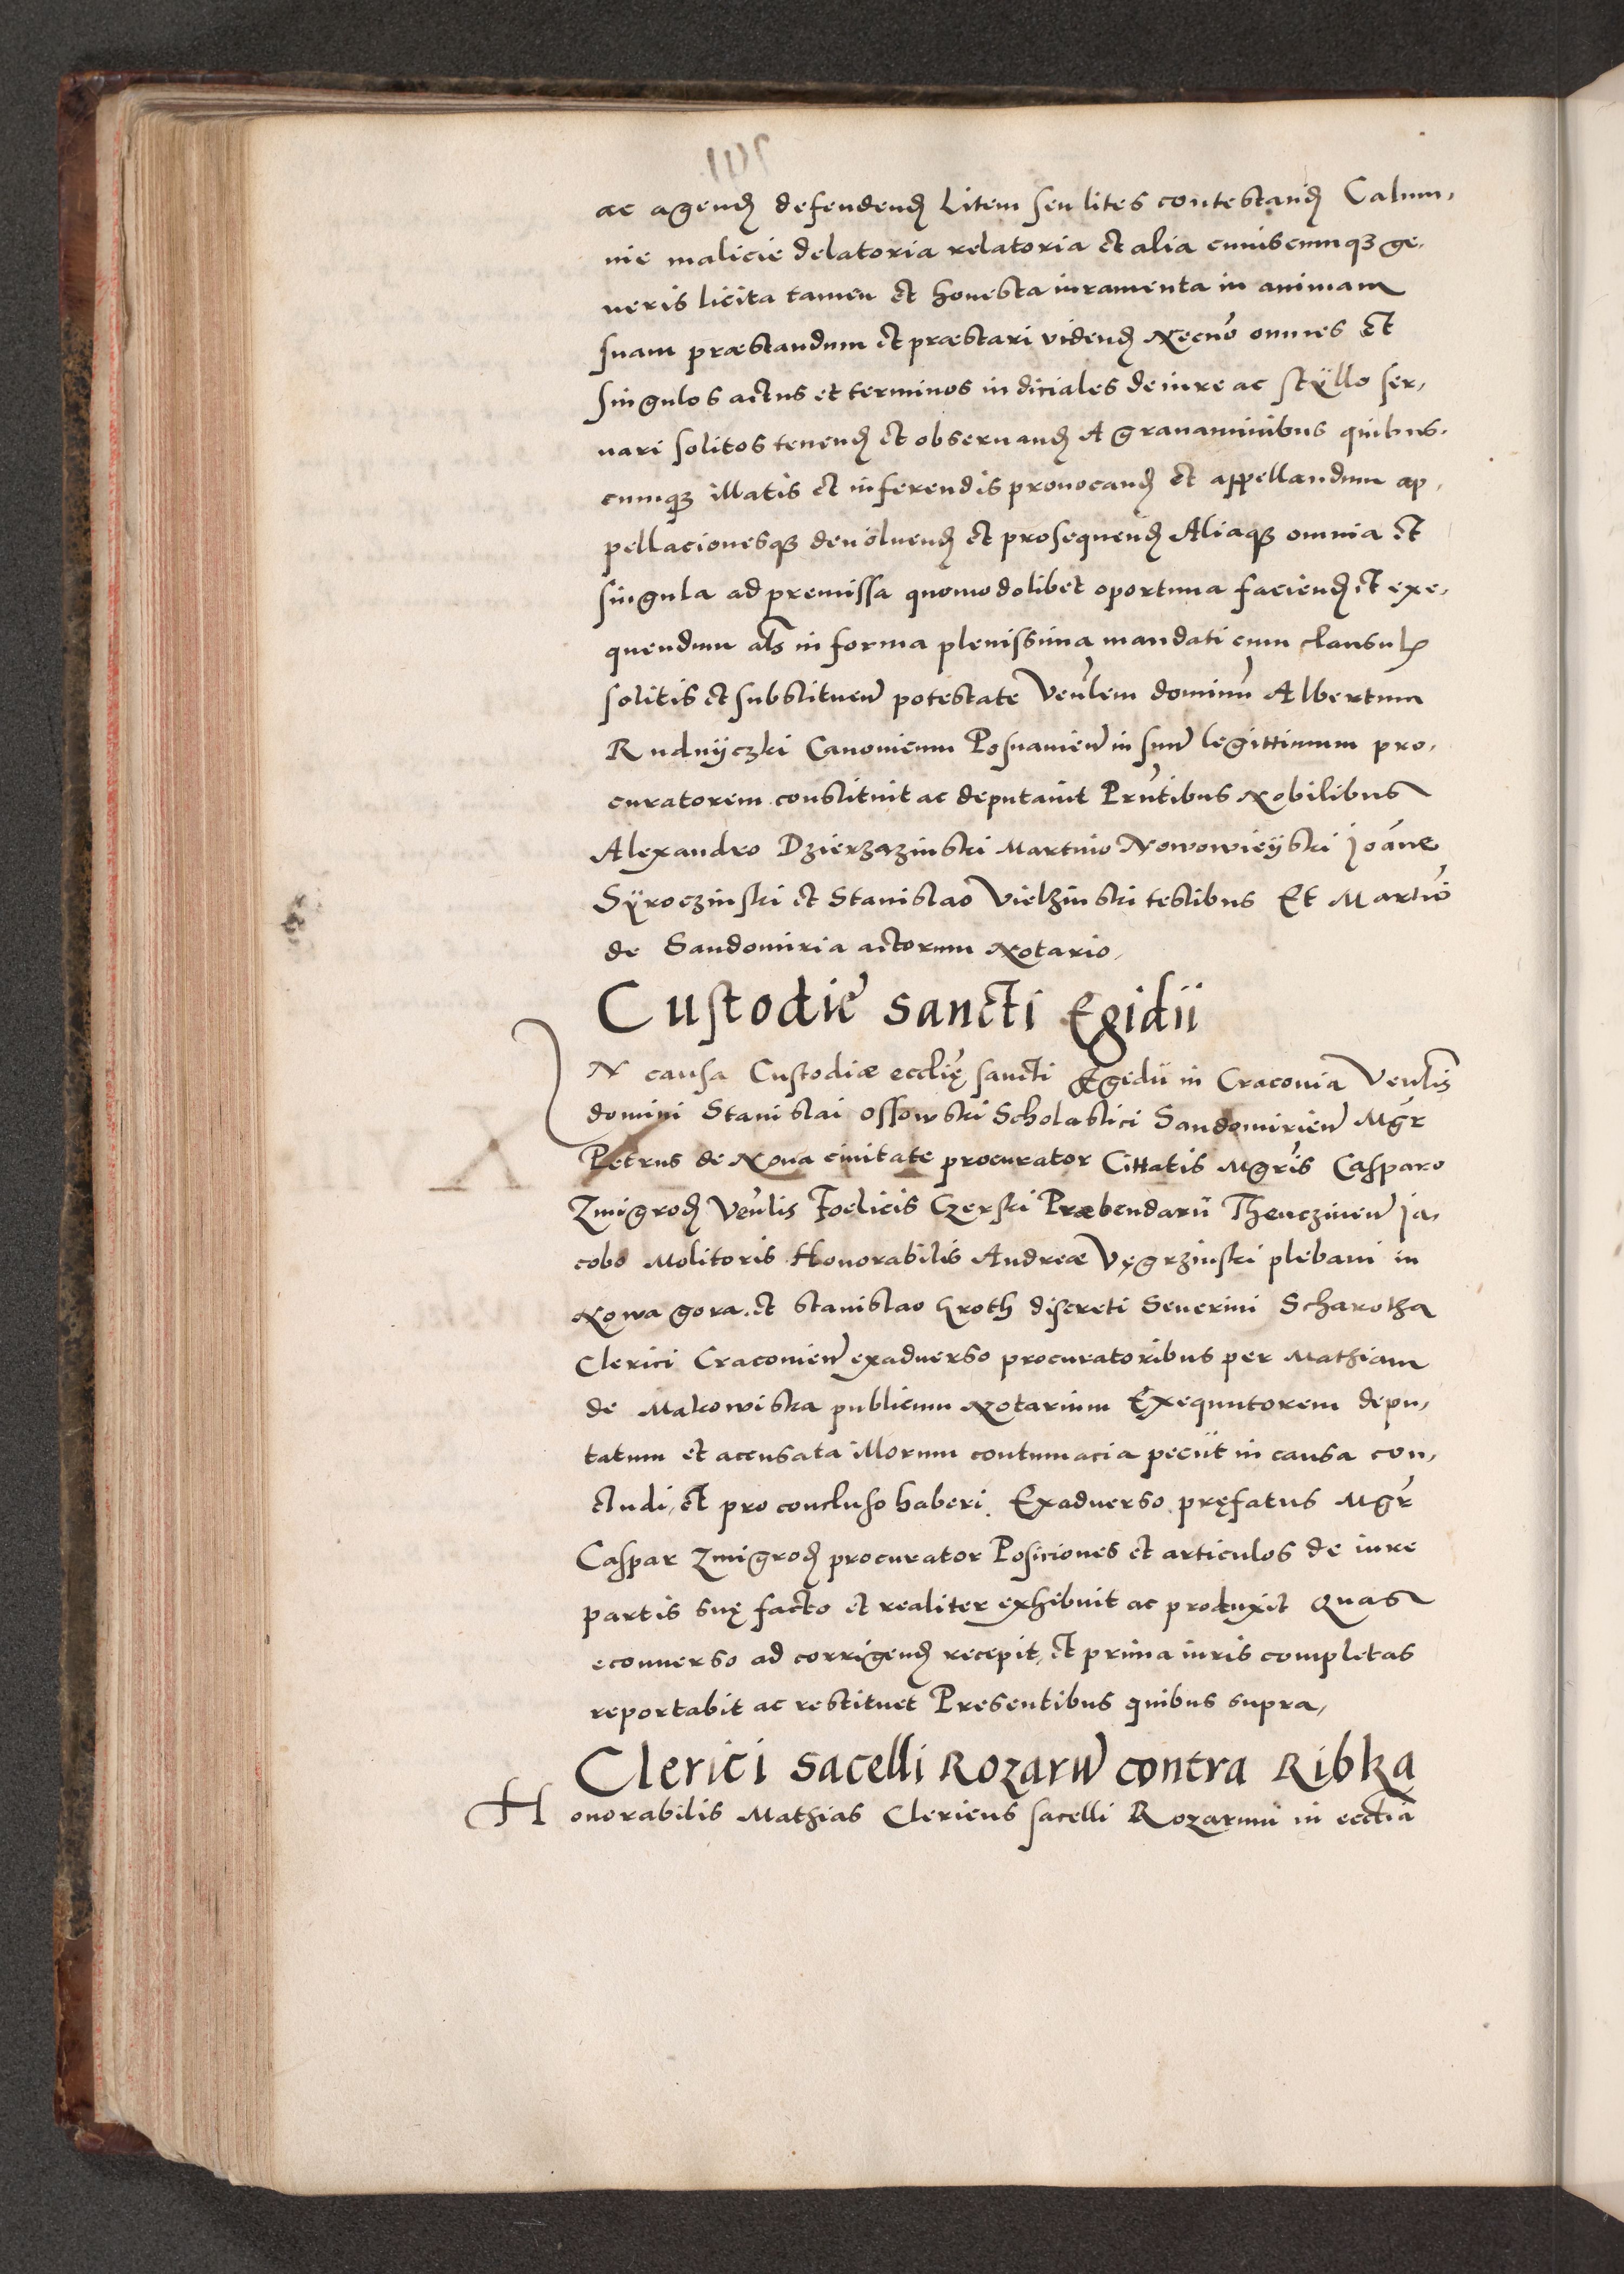 ac agend defendend Litem seu lites contestand Calum,
nie malicie delatoria relatoria et alia cuiuscumqꝫ ge,
neris licita tamen et honesta iuramenta in animam
suam præstandum et præstari vidend Necnō omnes et
singulos actus et terminos indiciales de iure ac stÿllo ser,
uari solitos tenend et obseruand A grauaminibus quibus,
cumqꝫ illatis et inferendis prouocand et appellandum ap,
pellacionesqꝫ deuoluend et prosequend Aliaqꝫ omnia et
singula ad premissa quomodolibet oportuna faciend et exe,
quendum als in forma plenissima mandati cum clausul
solitis et substituen potestate Venlem dominū Albertum
Rudnÿczki Canonicum Posnanien in suū legittimum pro,
curatorem constituit ac deputauit Prntibus Nobilibus
Alexandro Dzierzazinski Martino Nowowieÿski Joāne
Sÿroczinski et Stanislao Vielzinski testibus Et Martiō
de Sandomiria actorum Notario,
Custodie sancti Egidii
IN causa Custodiæ ecclię sancti Egidii in Cracouia Venlis
domini Stanislai Ossowski Scholastici Sandomirien Mgr
Petrus de Noua ciuitate procurator Cittatis Mgris Casparo
Zmigrod Venlis Foelicis Czerski Præbendarii Thenczinen Ja,
cobo Molitoris Honorabilis Andreæ Vęgrzinski plebani in
Nowa gora et Stanislao Groth discreti Seuerini Scharotha
Clerici Cracouien exaduerso procuratoribus per Mathiam
de Makowiska publicum Notarium Exequutorem depu,
tatum et accusata illorum contumacia peciit in causa con,
cludi, et pro concluso haberi. Exaduerso pręfatus Mgr
Caspar Zmigrod procurator Posiciones et articulos de iure
partis suę facto et realiter exhibuit ac produxit Quas
econuerso ad corrigend recepit, et prima iuris completas
reportabit ac restituet Presentibus quibus supra,
Clerici sacelli Rozarū contra Ribka
Honorabilis Mathias Clericus sacelli Rozarum in ecclia